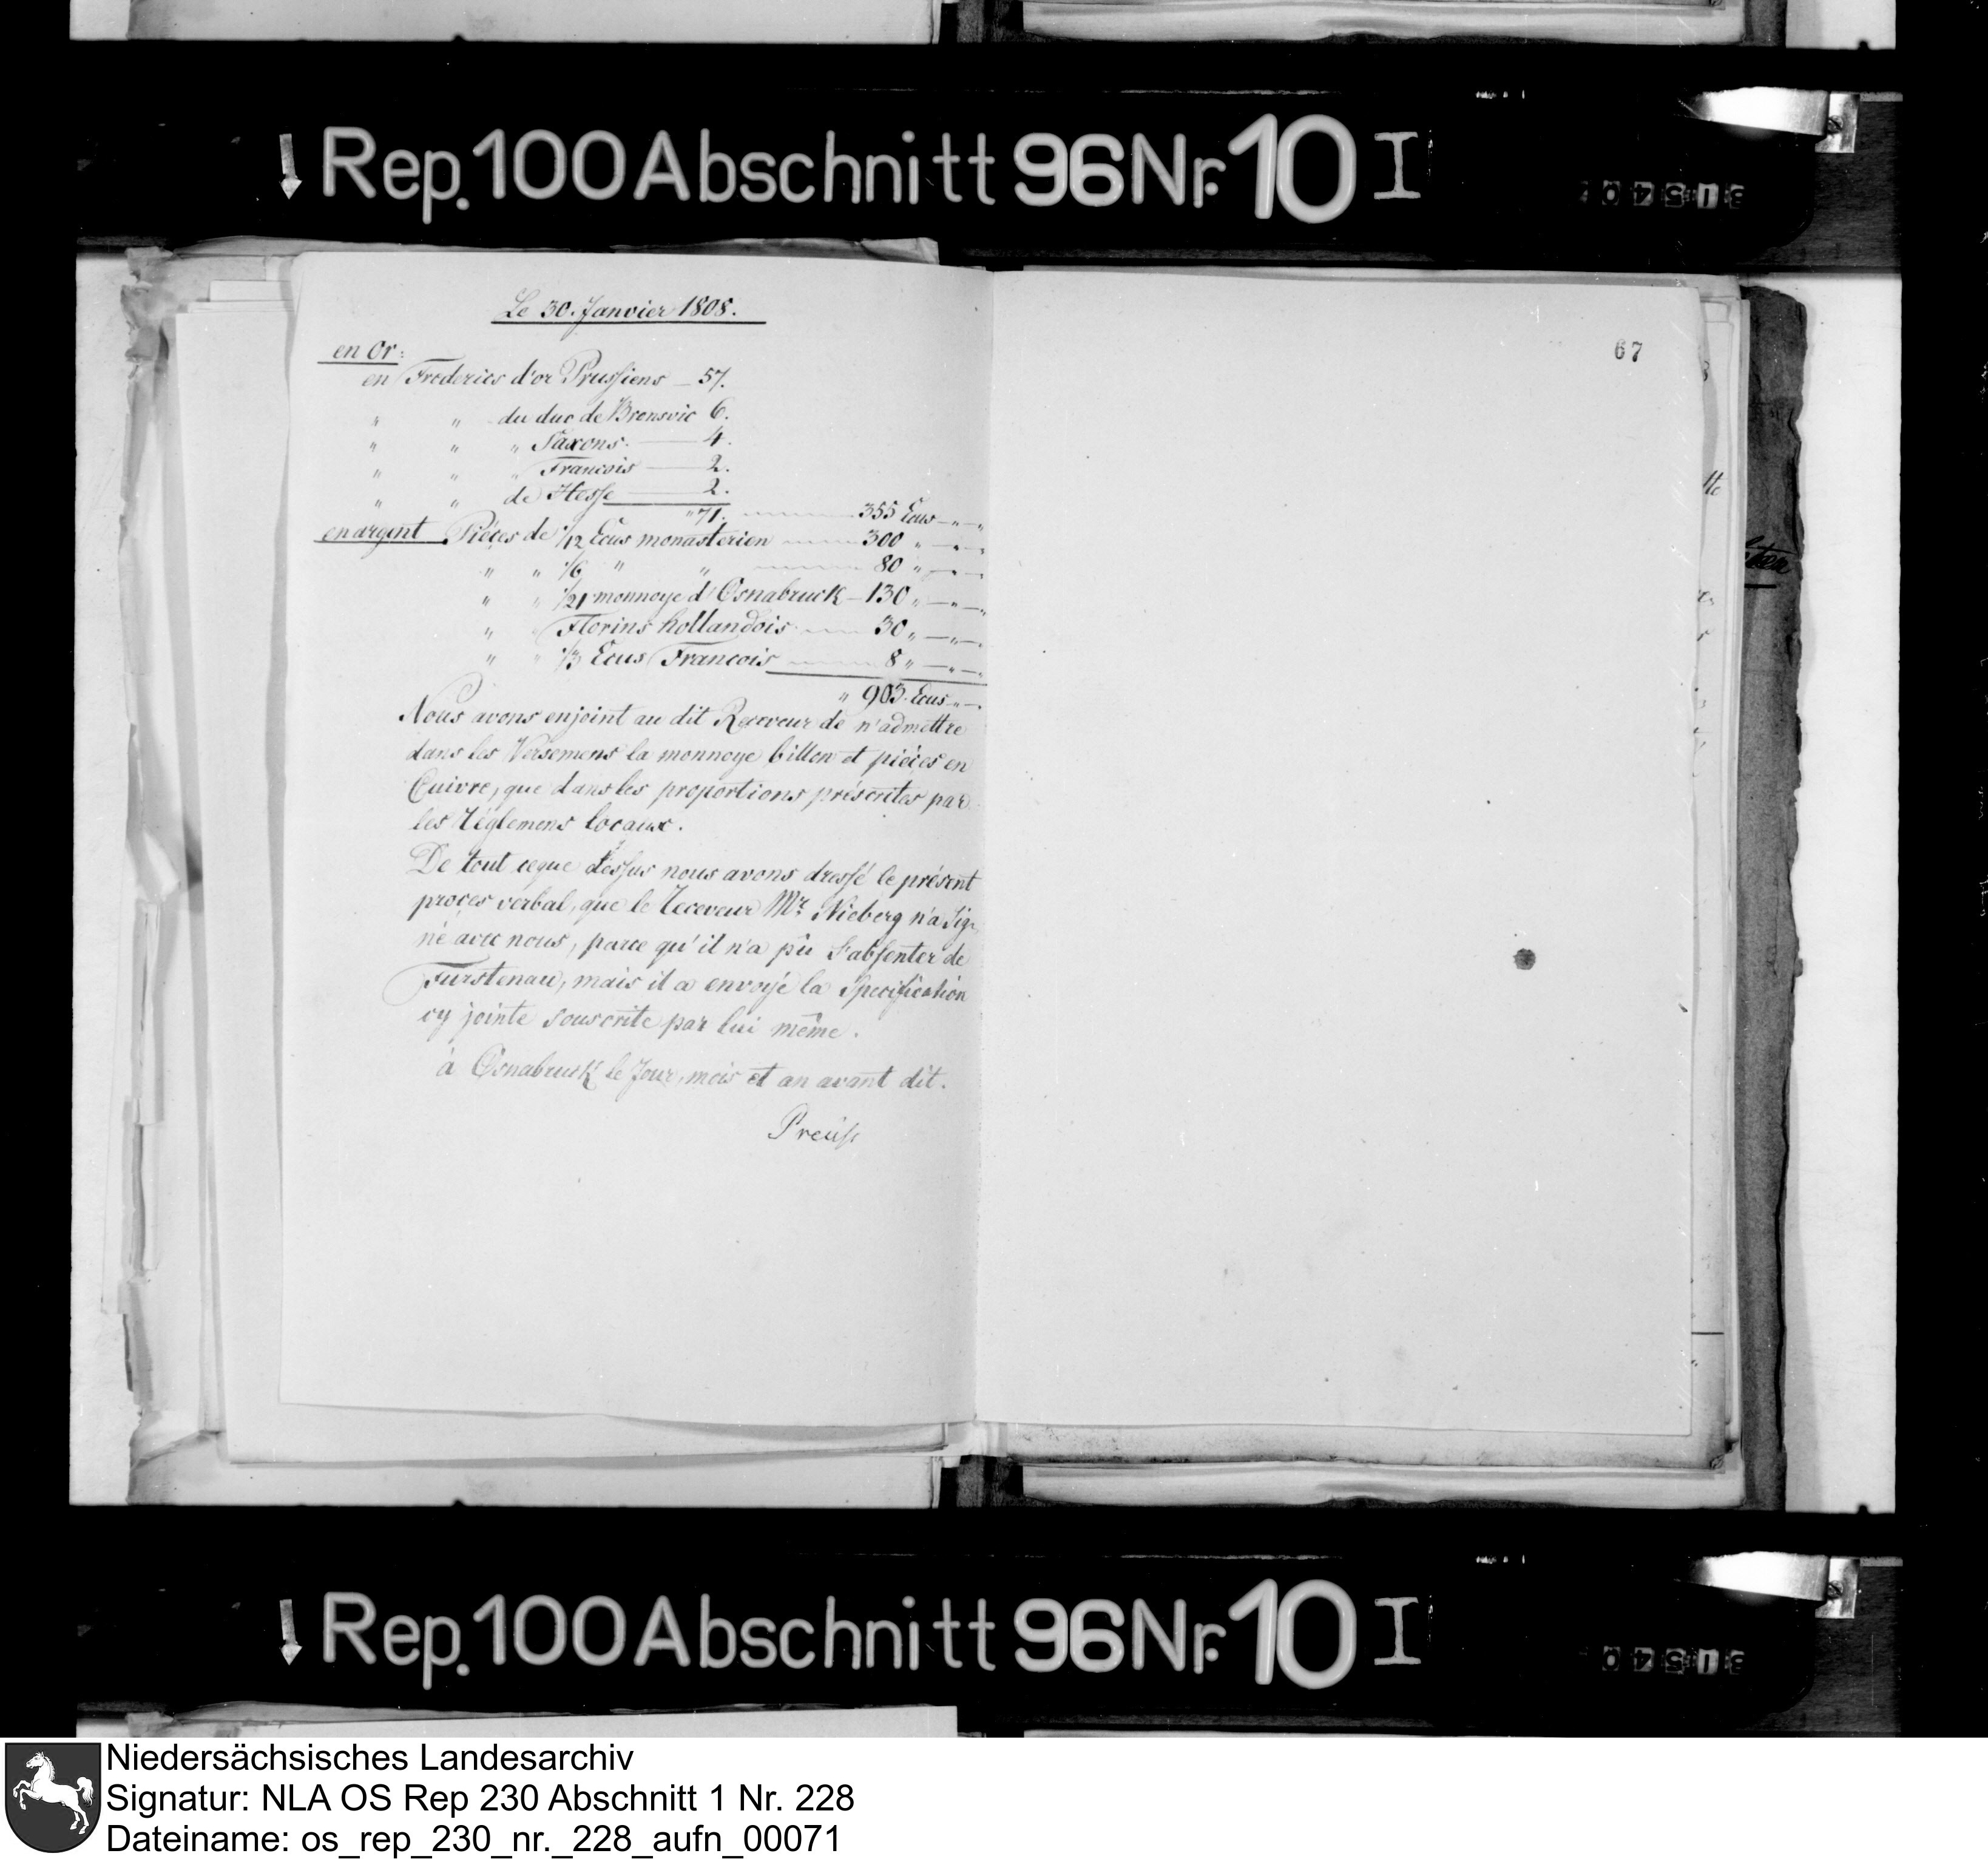 Rep. 100 Abschnitt 96 Nr. 10 I
Le 30. Janvier 1808.
67
en Or:
en Frederics d'or Prussiens — 57.
" " du duc de Bronsvic 6.
" " " Saxons. — 4.
" " " Francois — 2.
" " de Hesse — 2.
" 71. 355 Ecus — " — "
en argent Piéces de 1/12 Ecus monasterien 300 " — " — "
" " 1/6 " " 80 " — " — "
" " 1/21 monnoye d'Osnabruck — 130 " — " — "
" " Florins hollandois 30 " — " — "
" " 1/3 Ecus Francois 8 " — " — "
" 903. Ecus " — "
Nous avons enjoint au dit Receveur de n'admettre
dans les Versemens la monnoye billon et piéces en
Cuivre, que dans les proportions préscrites par
les Réglemens locaux.
De tout ceque dessus nous avons dressé le présent
proces verbal, que le Receveur Mr. Nieberg n'a Sig-
né avec nous, parce qu'il n'a pû S'absenter de
Furstenau, mais il a envoyé la Specification
cy jointe souscrite par lui même.
à Osnabruck le Jour, mois et an avant dit.
Preuß
Rep. 100 Abschnitt 96 Nr. 10 I
Niedersächsisches Landesarchiv
Signatur: NLA OS Rep 230 Abschnitt 1 Nr. 228
Dateiname: os_rep_230_nr._228_aufn_00071